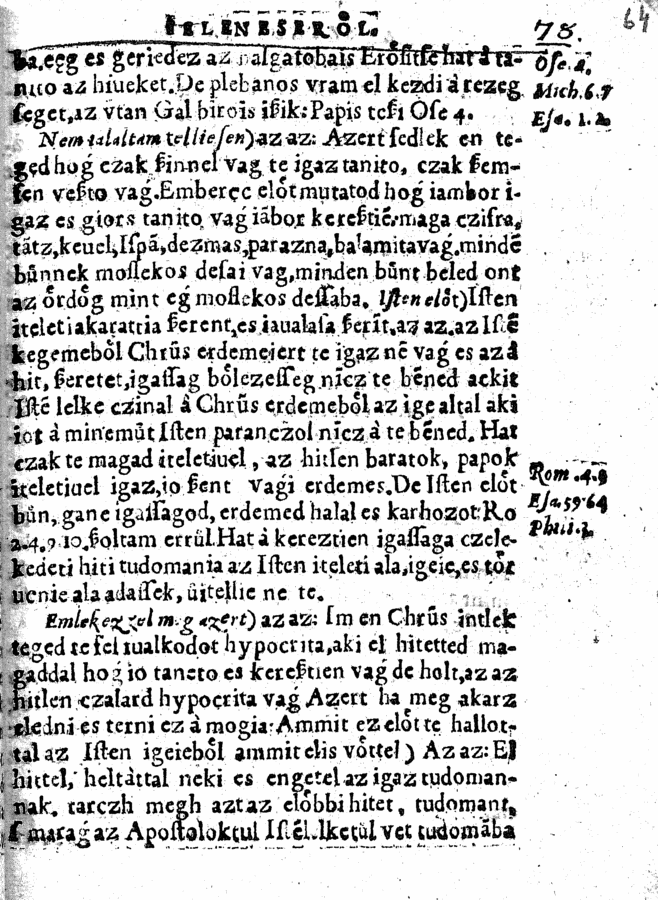 IELENESERO̗L. 78. 64
ba, eg̃ es geriedez az nalgatobais Ero̗ſitſe hat à ta-
nito az hiueket. De plebanos vram el kezdi à rezeg
ſeget, az vtan Gal birois ißik: Papis teſi Oſe 4.
Nem talaltam tellieſen) az az: Azert fedlek en te-
ged hog̃ czak ßinnel vag te igaz tanito, czak ßem-
fen veßto vag̃. Emberec elo̗t mutatod hog̃ iambor i-
gaz es giors tanito vag̃ iābor kereßtiē: maga czifra,
tātz, keuel, Iſpā, dezmas, parazna, balamita vag̃. mindē
bu̗nnek moſlekos deſai vag, minden bu̗nt beled ont
az o̗rdo̗g mint eg̃ moſlekos deſſaba. Iſten elo̗t) Iſten
iteleti akarattia ßerent, es iaualaſa ßerīt, az az. az Iſtē
kegemebo̗l Chrūs erdemeiert te igaz nē vag̃ es az à
hit, ßeretet, igaſſag bo̗lezeſſeg nīcz te bēned ackit
Iſtē lelke czinal à Chrūs erdemebo̗l az ige altal aki
iot à minemu̗t Iſten paranczol nīcz à te bēned. Hat
czak te magad iteletiuel, az hitſen baratok, papok
iteletiuel igaz, io ßent vagi erdemes. De Iſten elo̗t
bu̗n, gane igaſſagod, erdemed halal es karhozot: Ro
2. 4. 9. 10. ßoltam erru̗l. Hat à kereztien igaſſaga czele-
kedeti hiti tudomania az Iſten iteleti ala, igeie, es to̗r
uenie ala adaſſek, u̗itellie ne te.
Emlekezzel meg azert) az az: Im en Chrūs intlek
teged te fel fualkodot hypocrita, aki el hitetted ma-
gaddal hog̃ io taneto es kereßtien vag̃ de holt, az az
hitlen czalard hypocrita vag̃ Azert ha meg akarz
eledni es terni ez à mogia: Ammit ez elo̗t te hallot-
tal az Iſten igeiebo̗l ammit elis vo̗ttel) Az az: El
hittel, heltàttal neki es engetel az igaz tudoman-
nak. tarczh megh aztaz elo̗bbi hitet, tudomant,
ſ marag̃ az Apoſtoloktul Iſtē lelketu̗l vet tudomāba
Oſe. 4.
Mich. 6. 7
Eſa. 1. 2.
Rom. 4. 9
Eſa. 59 64
Phili. 3.